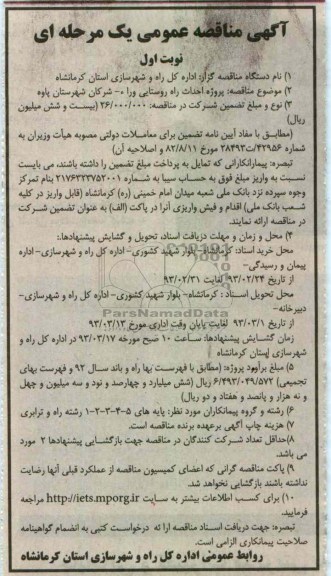 آگهی مناقصه عمومی یک مرحله ای
نوبت اول
۱) نام دستگاه مناقصه گزار: اداره کل راه و شهرسازی استان کرمانشاه
۲) موضوع مناقصه: پروژه احداث راه روستایی ورا -۰ شرکان شهرستان پاوه
۳) نوع و مبلغ تضمین شرکت در مناقصه: ۲۶/۰۰۰/۰۰۰ (بیست و شش میلیون
ریال)
(مطابق با مفاد آیین نامه تضمین برای معاملات دولتی مصوبه هیأت وزیران به
شماره ۴۲۹۵۶/ت۲۸۴۹۳ مورخ ۸۲/۸/۱۱ و اصلاحیه آن)
تبصره: پیمانکارانی که تمایل به پرداخت مبلغ تضمین را داشته باشند، می بایست
نسبت به واریز مبلغ فوق به حساب سیبا به شماره ۲۱۷۶۴۳۳۷۵۲۰۰۱ بنام تمرکز
وجوه سپرده نزد بانک ملی شعبه میدان امام خمینی (ره) کرمانشاه (قابل واریز در کلیه
شعب بانک ملی) اقدام و فیش واریزی آنرا در پاکت (الف) به عنوان تضمین شرکت
در مناقصه ارائه نمایند.
۴) محل و زمان و مهلت دریافت اسناد، تحویل و گشایش پیشنهادها:
محل خرید اسناد: کرمانشاه- بلوار شهید کشوری- اداره کل راه و شهرسازی- اداره
پیمان و رسیدگی-
از تاریخ ۹۳/۰۲/۲۴ لغایت ۹۳/۰۲/۳۱
محل تحویل اسناد: کرمانشاه- بلوار شهید کشوری- اداره کل راه و شهرسازی-
دبیرخانه-
از تاریخ ۹۳/۰۳/۱ لغایت پایان وقت اداری مورخ ۹۳/۰۳/۱۳
زمان گشایش پیشنهادها: ساعت ۱۰ صبح مورخه ۹۳/۰۳/۱۷ در اداره کل راه و
شهرسازی استان کرمانشاه
۵) مبلغ برآورد پروژه: (مطابق با فهرست بها راه و باند سال ۹۲ و فهرست بهای
تجمیعی) ۶/۴۹۳/۰۴۹/۵۷۲ ریال (شش میلیارد و چهارصد و نود و سه میلیون و چهل
و نه هزار و پانصد و هفتاد و دو ریال)
۶) رشته و گروه پیمانکاران مورد نظر: پایه های ۵-۴-۳-۲-۱ رشته راه و ترابری
۷) هزینه چاپ آگهی برعهده برنده مناقصه است.
۸) حداقل تعداد شرکت کنندگان در مناقصه جهت بازگشایی پیشنهادها ۲ مورد
می باشد.
۹) پاکت مناقصه گرانی که اعضای کمیسیون مناقصه از عملکرد قبلی آنها رضایت
نداشته باشند بازگشایی نخواهد شد.
۱۰) برای کسب اطلاعات بیشتر به سایت http://iets.mporg.ir مراجعه
فرمایید.
تبصره: جهت دریافت اسناد مناقصه ارائه درخواست کتبی به انضمام گواهینامه
صلاحیت پیمانکاری الزامی است.
روابط عمومی اداره کل راه و شهرسازی استان کرمانشاه
ParsNamadData